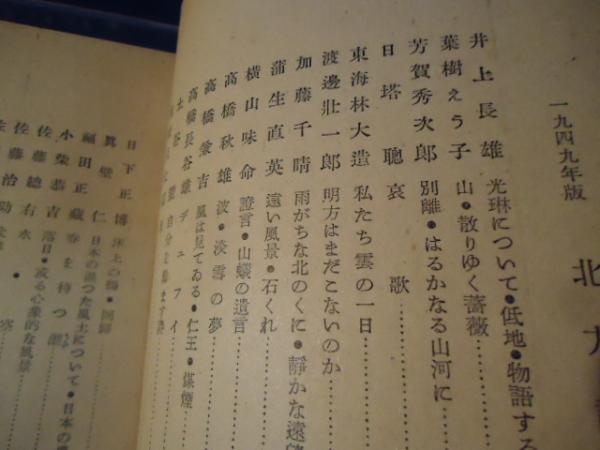 一九四九年版
北方
井上長雄 光琳について・低地・物語する
葉樹えう子 山・散りゆく薔薇
芳賀秀次郎 別離・はるかなる山河に
日塔聰 哀歌
東海林大造 私たち雲の一日
渡邊壯一郎 明方はまだこないのか
加藤千晴 雨がちな北のくに・靜かな遠
蒲生直英 遠い風景・石くれ
横山味命 證言・山蟻の遺言
高橋秋雄 波・淡雪の夢
高橋兼吉
高橋長谷雄 風は見てゐる・仁王・煤煙
土谷 デュフイ
自分を
日下正博 床上の
眞壁仁 日本の
福田正藏 春を待つ
小柴恭吉 落日・或る心象的な風景
佐藤總右
佐藤治助